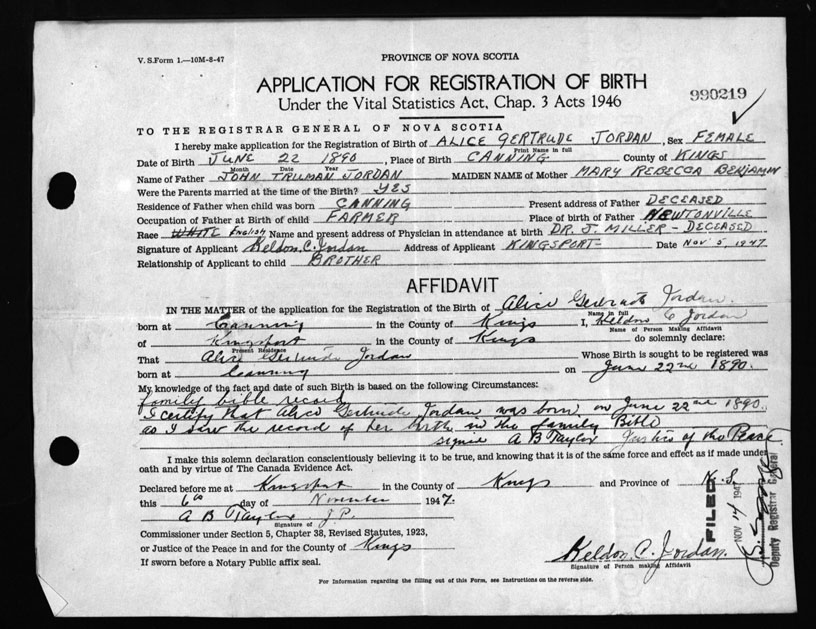 V. S. Form 1.—10M-8-47
PROVINCE OF NOVA SCOTIA
APPLICATION FOR REGISTRATION OF BIRTH
Under the Vital Statistics Act, Chap. 3 Acts 1946
990219
TO THE REGISTRAR GENERAL OF NOVA SCOTIA
I hereby make application for the Registration of Birth of ALICE GERTRUDE JORDAN, Sex FEMALE
Print Name in full
Date of Birth JUNE 22 1890, Place of Birth CANNING County of KINGS
Month Date Year
Name of Father JOHN TRUMAN JORDAN MAIDEN NAME of Mother MARY REBECCA BENJAMIN
Were the Parents married at the time of the Birth? YES
Residence of Father when child was born CANNING Present address of Father DECEASED
Occupation of Father at Birth of child FARMER Place of birth of Father NEWTONVILLE
Race WHITE English Name and present address of Physician in attendance at birth DR. J. MILLER - DECEASED
Signature of Applicant Keldon. C. Jordan Address of Applicant KINGSPORT Date Nov 5, 1947.
Relationship of Applicant to child BROTHER
AFFIDAVIT
IN THE MATTER of the application for the Registration of the Birth of Alice Gertrude Jordan.
Name in full
born at Canning in the County of Kings I, Keldon C Jordan
Name of Person Making Affidavit
of Kingsport in the County of Kings do solemnly declare:
Present Residence
That Alice Gertrude Jordan Whose Birth is sought to be registered was
born at Canning on June 22nd 1890.
My knowledge of the fact and date of such Birth is based on the following Circumstances:
family bible record
I certify that Alice Gertrude Jordan was born on June 22nd 1890.
as I saw the record of her birth in the family Bible
A B Taylor Justice of the Peace
I make this solemn declaration conscientiously believing it to be true, and knowing that it is of the same force and effect as if made under
oath and by virtue of The Canada Evidence Act.
Declared before me at Kingsport in the County of Kings and Province of N. S.
this 6th day of November 1947.
A B Taylor J.P.
Signature of
Commissioner under Section 5, Chapter 38, Revised Statutes, 1923,
or Justice of the Peace in and for the County of Kings
If sworn before a Notary Public affix seal.
Keldon. C. Jordan.
Signature of Person making Affidavit
FILED
NOV 14 1947
Deputy Registrar General
For Information regarding the filling out of this Form, see Instructions on the reverse side.